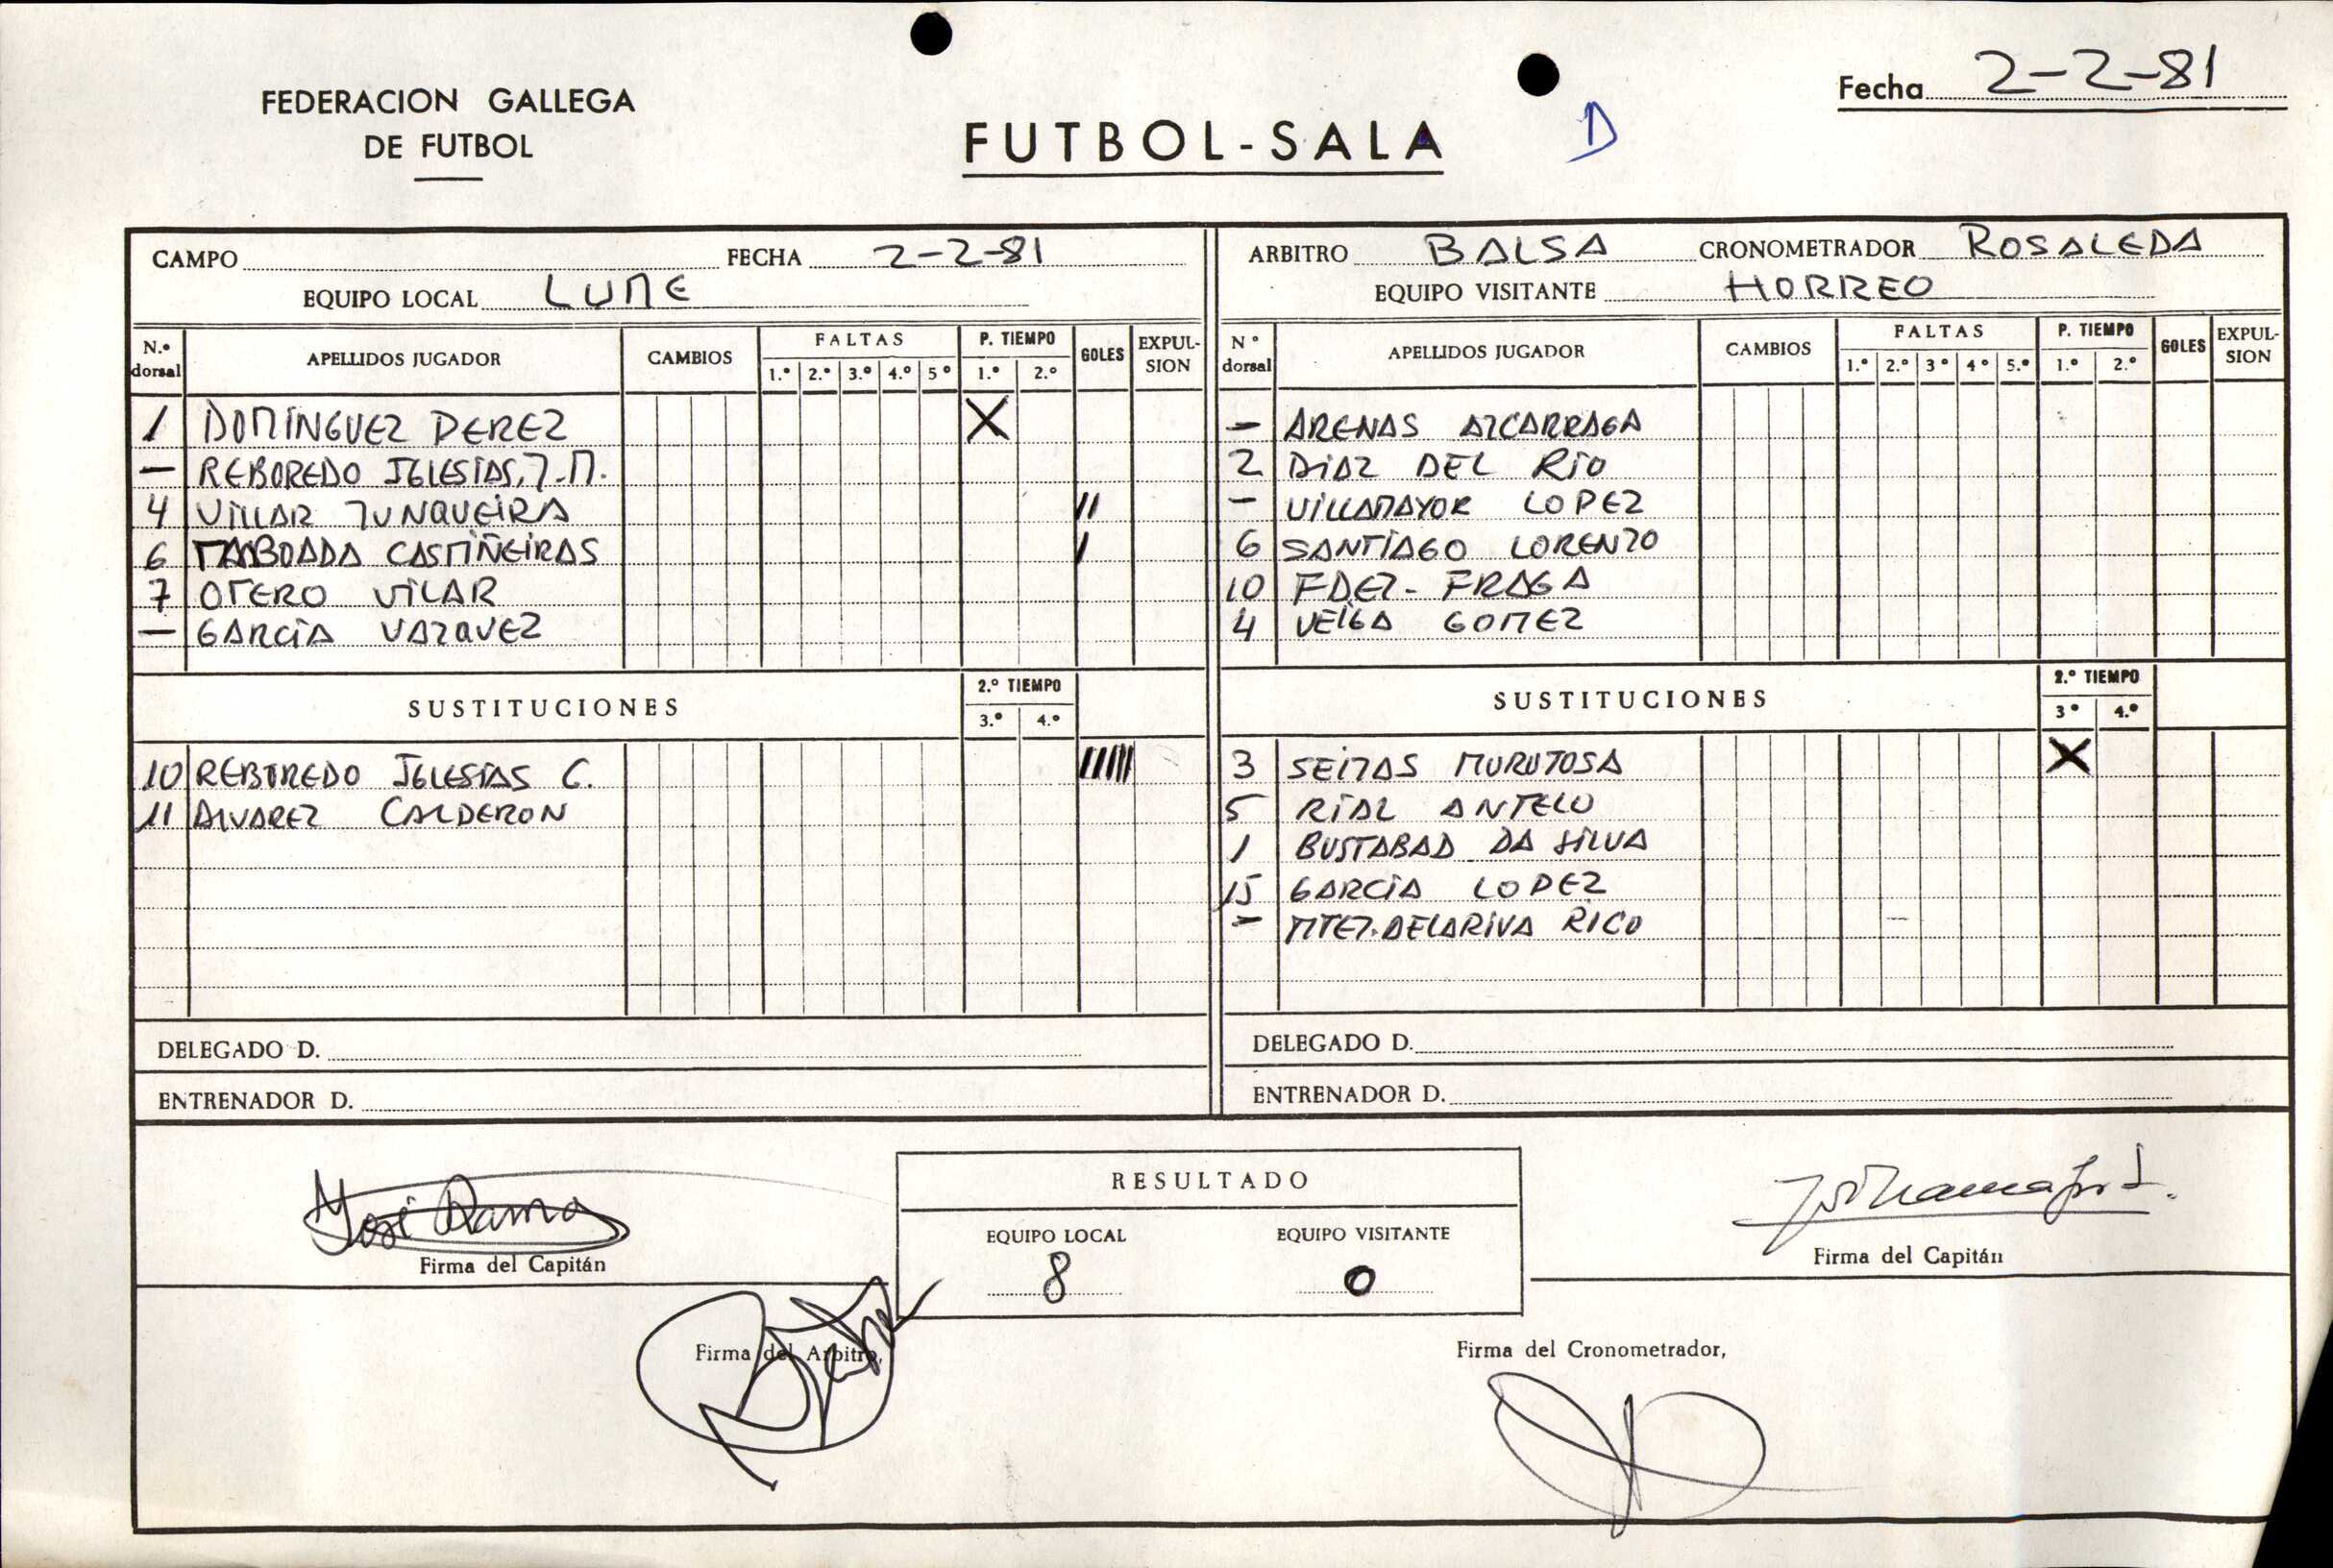 FEDERACION GALLEGA
DE FUTBOL
FUTBOL-SALA
D
Fecha 2-2-81
CAMPO FECHA 2-2-81
EQUIPO LOCAL LUME
N.º dorsal APELLIDOS JUGADOR CAMBIOS FALTAS 1.º 2.º 3.º 4.º 5º P. TIEMPO 1.º 2.º GOLES EXPULSION
1 DOMINGUEZ PEREZ X
— REBOREDO IGLESIAS, J.M.
4 VILLAR JUNQUEIRA II
6 TABOADA CASTIÑEIRAS I
7 OTERO VILAR
— GARCIA VAZQUEZ
SUSTITUCIONES 2.º TIEMPO 3.º 4.º
10 REBOREDO IGLESIAS C. IIIII
11 ALVAREZ CALDERON
DELEGADO D.
ENTRENADOR D.
ARBITRO BALSA CRONOMETRADOR ROSALEDA
EQUIPO VISITANTE HORREO
Nº dorsal APELLIDOS JUGADOR CAMBIOS FALTAS 1.º 2.º 3º 4º 5.º P. TIEMPO 1.º 2.º GOLES EXPULSION
— ARENAS AZCARRAGA
2 DIAZ DEL RIO
— VILLAMAYOR LOPEZ
6 SANTIAGO LORENZO
10 FDEZ- FRAGA
4 VEIGA GOMEZ
SUSTITUCIONES 2.º TIEMPO 3º 4.º
3 SEIJAS MURUTOSA X
5 RIAL ANTELO
1 BUSTABAD DA SILVA
15 GARCIA LOPEZ
— MTEZ. DELARIVA RICO
DELEGADO D.
ENTRENADOR D.
José Ramon
Firma del Capitán
RESULTADO
EQUIPO LOCAL EQUIPO VISITANTE
8 0
Firma del Capitán
Firma del Arbitro,
Firma del Cronometrador,